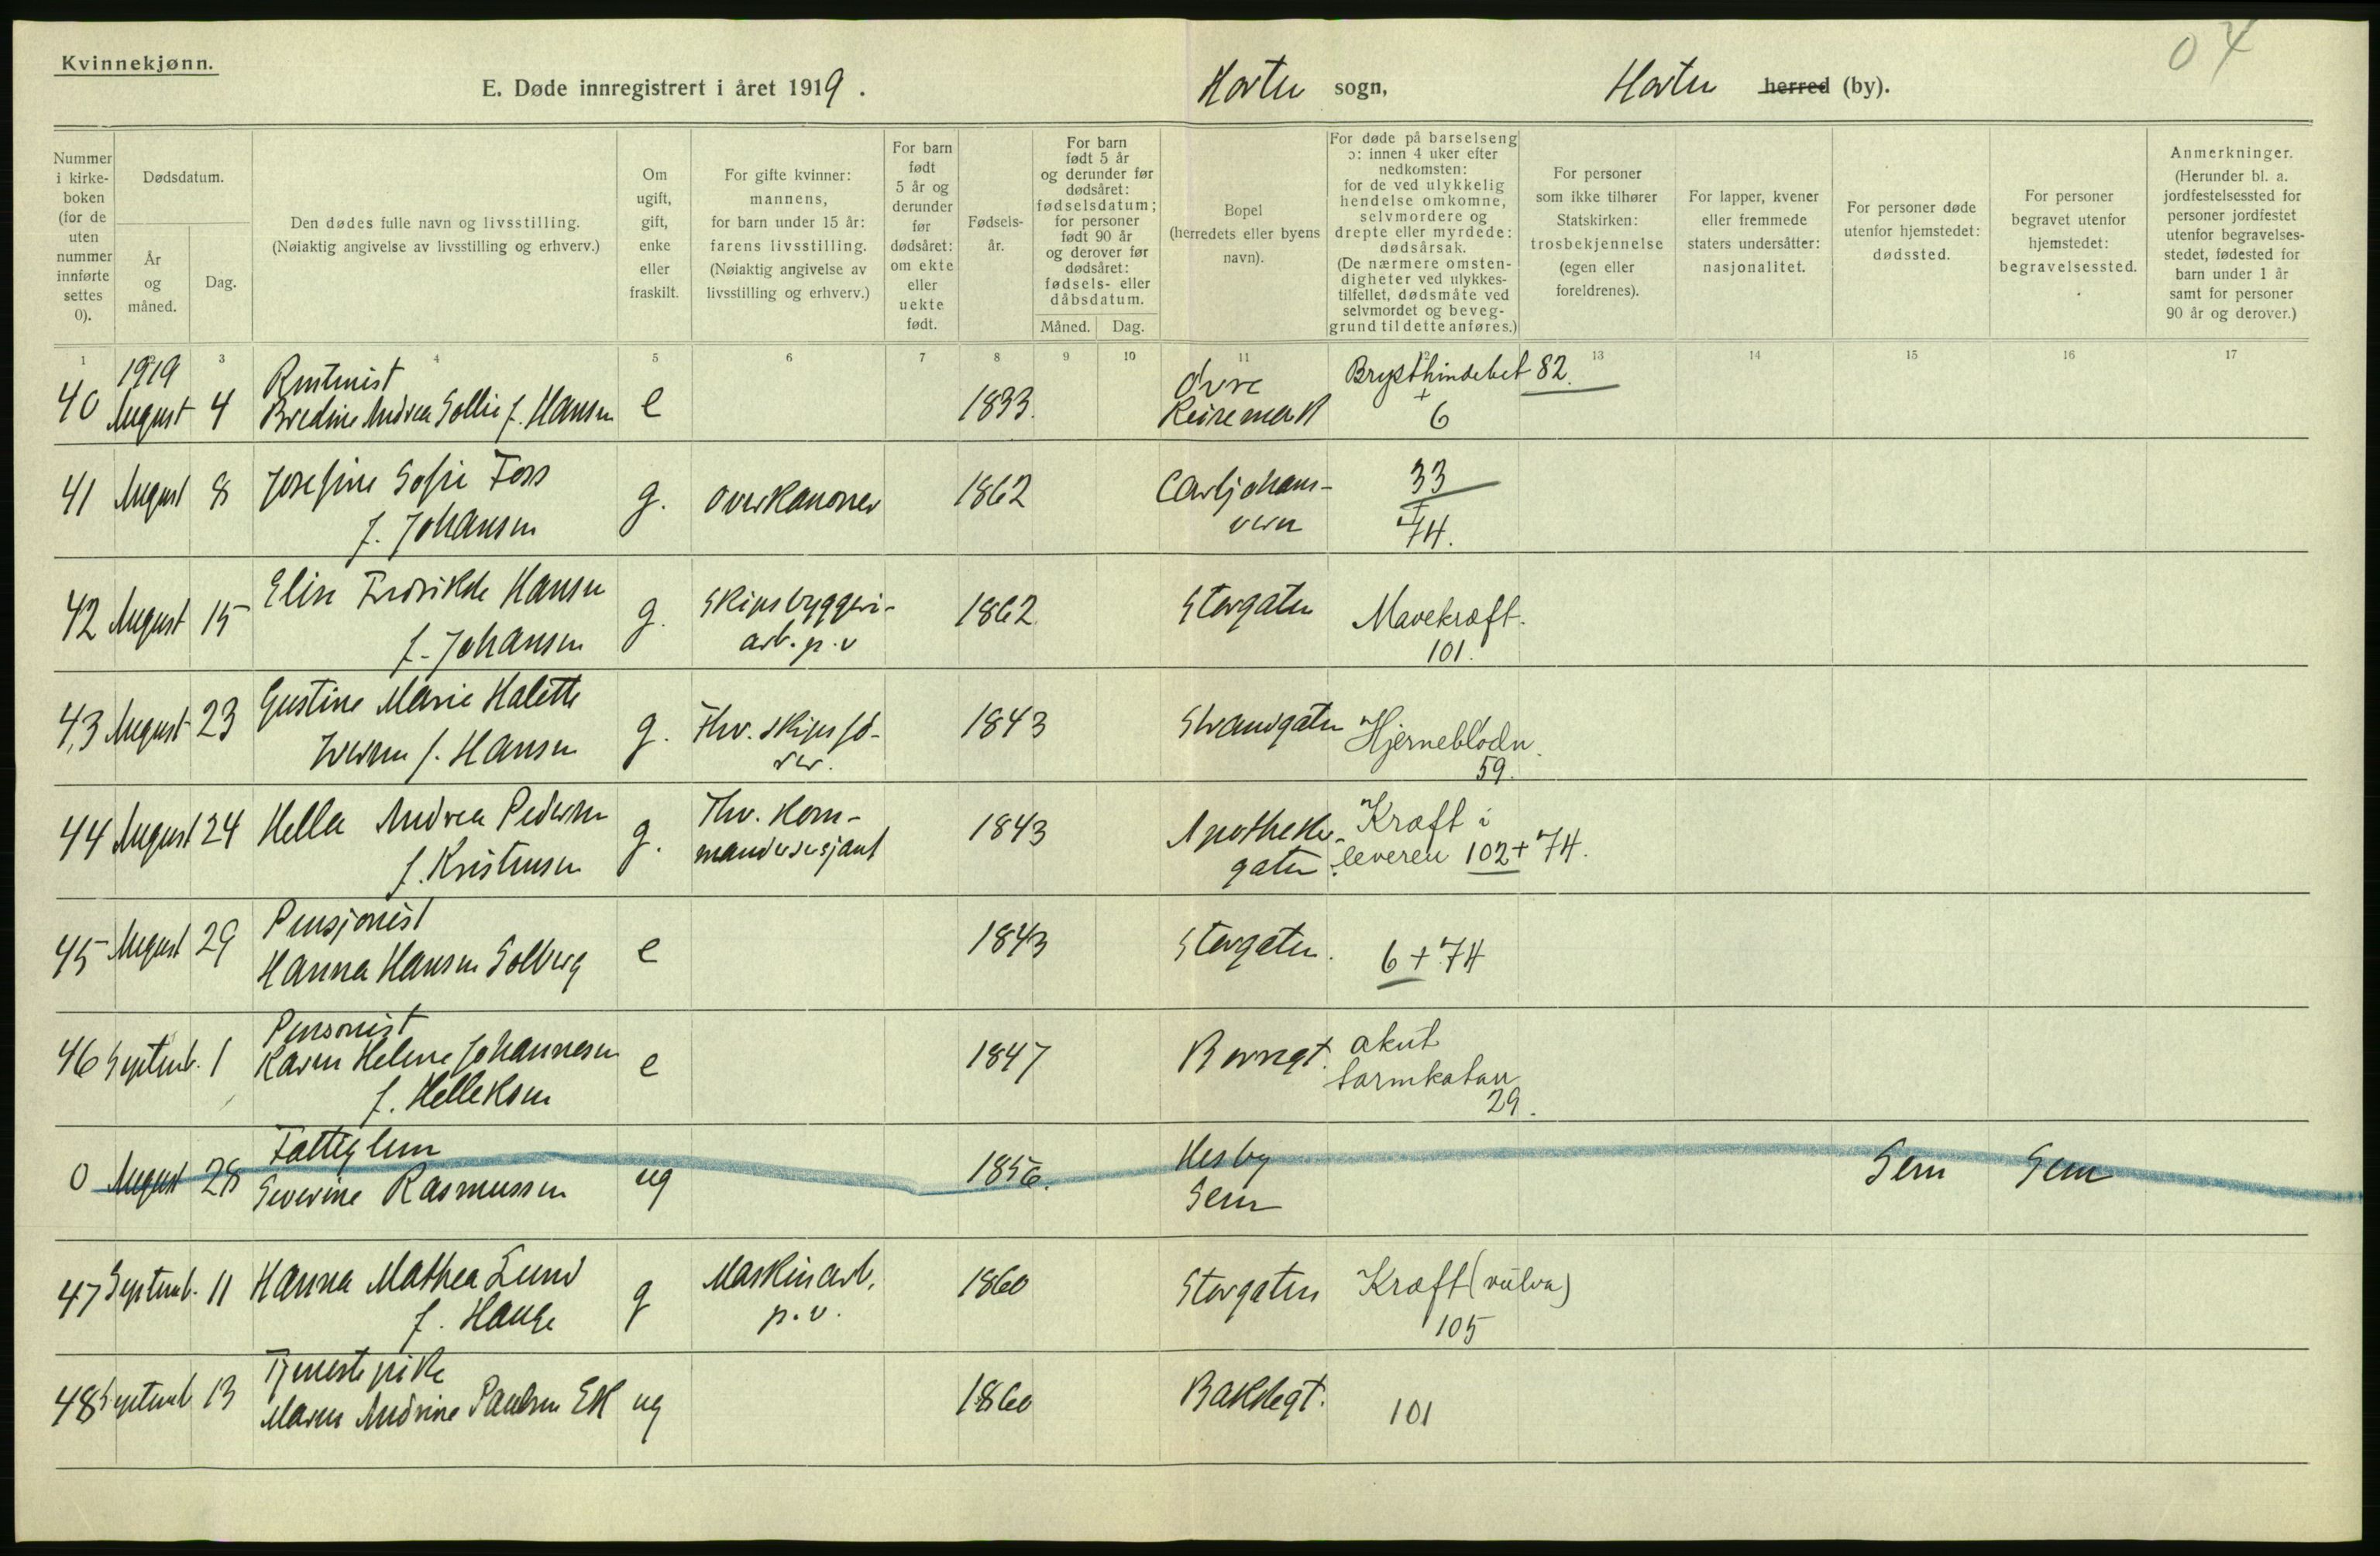 Kvinnekjønn.
04
E. Døde innregistrert i året 1919. Horten sogn, Horten herred (by).
Nummer i kirke- boken (for de uten nummer innførte settes 0).
Dødsdatum.
År og måned.
Dag.
Den dødes fulle navn og livsstilling.
(Nøiaktig angivelse av livsstilling og erhverv.)
Om ugift, gift, enke eller fraskilt.
For gifte kvinner: mannens, for barn under 15 år: farens livsstilling. (Nøiaktig angivelse av livsstilling og erhverv.)
For barn født 5 år og derunder før dødsåret: om ekte eller uekte født.
Fødsels- år.
For barn født 5 år og derunder før dødsåret: fødselsdatum; for personer født 90 år og derover før dødsåret: fødsels- eller dåbsdatum.
Måned. Dag.
Bopel (herredets eller byens navn).
For døde på barselseng ɔ: innen 4 uker efter nedkomsten: for de ved ulykkelig hendelse omkomne, selvmordere og drepte eller myrdede: dødsårsak. (De nærmere omsten- digheter ved ulykkes- tilfellet, dødsmåte ved selvmordet og beveg- grund til dette anføres.)
For personer som ikke tilhører Statskirken: trosbekjennelse (egen eller foreldrenes).
For lapper, kvener eller fremmede staters undersåtter: nasjonalitet.
For personer døde utenfor hjemstedet: dødssted.
For personer begravet utenfor hjemstedet: begravelsessted.
Anmerkninger. (Herunder bl. a. jordfestelsessted for personer jordfestet utenfor begravelses- stedet, fødested for barn under 1 år samt for personer 90 år og derover.)
1 2 3 4 5 6 7 8 9 10 11 12 13 14 15 16 17
1919 Rentenist Øvre Brysthindebet 82.
40 August 4 Bredine Andrea Sollie f. Hansen e 1833. Keisemark + 6
41 August 8 Josefine Sofie Foss g. Overkanoner 1862 Carljohans- 33
f. Johansen vern + 74.
42 August 15 Elise Fredrikke Hansen g. Skipsbyggeri- 1862. Storgaten Mavekræft.
f. Johansen arb. p.v 101.
43 August 23 Gustine Marie Halette g. Fhv. skipsfø- 1843 Strandgaten Hjerneblødn.
Iversen f. Hansen rer. 59.
44 August 24 Hella Andrea Pedersen g. Fhv. kom- 1843 Apotheker- Kræft i
f. Kristensen mandersersjant gaten. leveren 102 + 74.
Pensjonist
45 August 29 Hanna Hansen Solberg e 1843 Storgaten. 6 + 74
Pensonist akut
46 Septemb. 1 Karen Helene Johannesen e 1847 Borregt. tarmkatarr
f. Helleksen 29.
Fattiglem Hesby
0 August 28 Severine Rasmussen ug 1856. Sem Sem Sem
47 Septemb. 11 Hanna Mathea Lund g Maskinarb. 1860 Storgaten Kræft (vulva)
f. Hauge p.v. 105
Tjenestepike
48 Septemb 13 Maren Andrine Paulsen Ek ug 1860 Bakkegt. 101